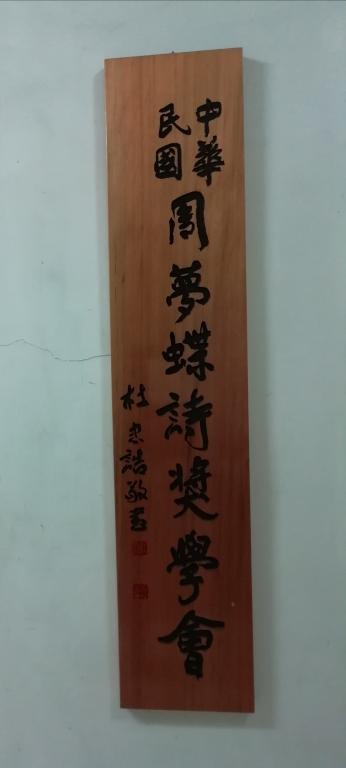 中華
民國
周夢蝶詩獎學會
杜忠誥敬書